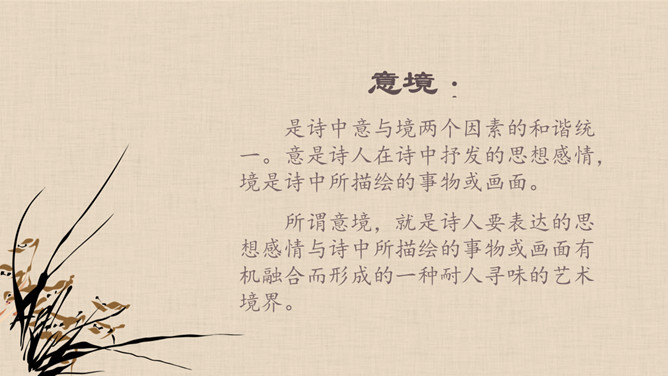 意境：
是诗中意与境两个因素的和谐统
一。意是诗人在诗中抒发的思想感情，
境是诗中所描绘的事物或画面。
所谓意境，就是诗人要表达的思
想感情与诗中所描绘的事物或画面有
机融合而形成的一种耐人寻味的艺术
境界。